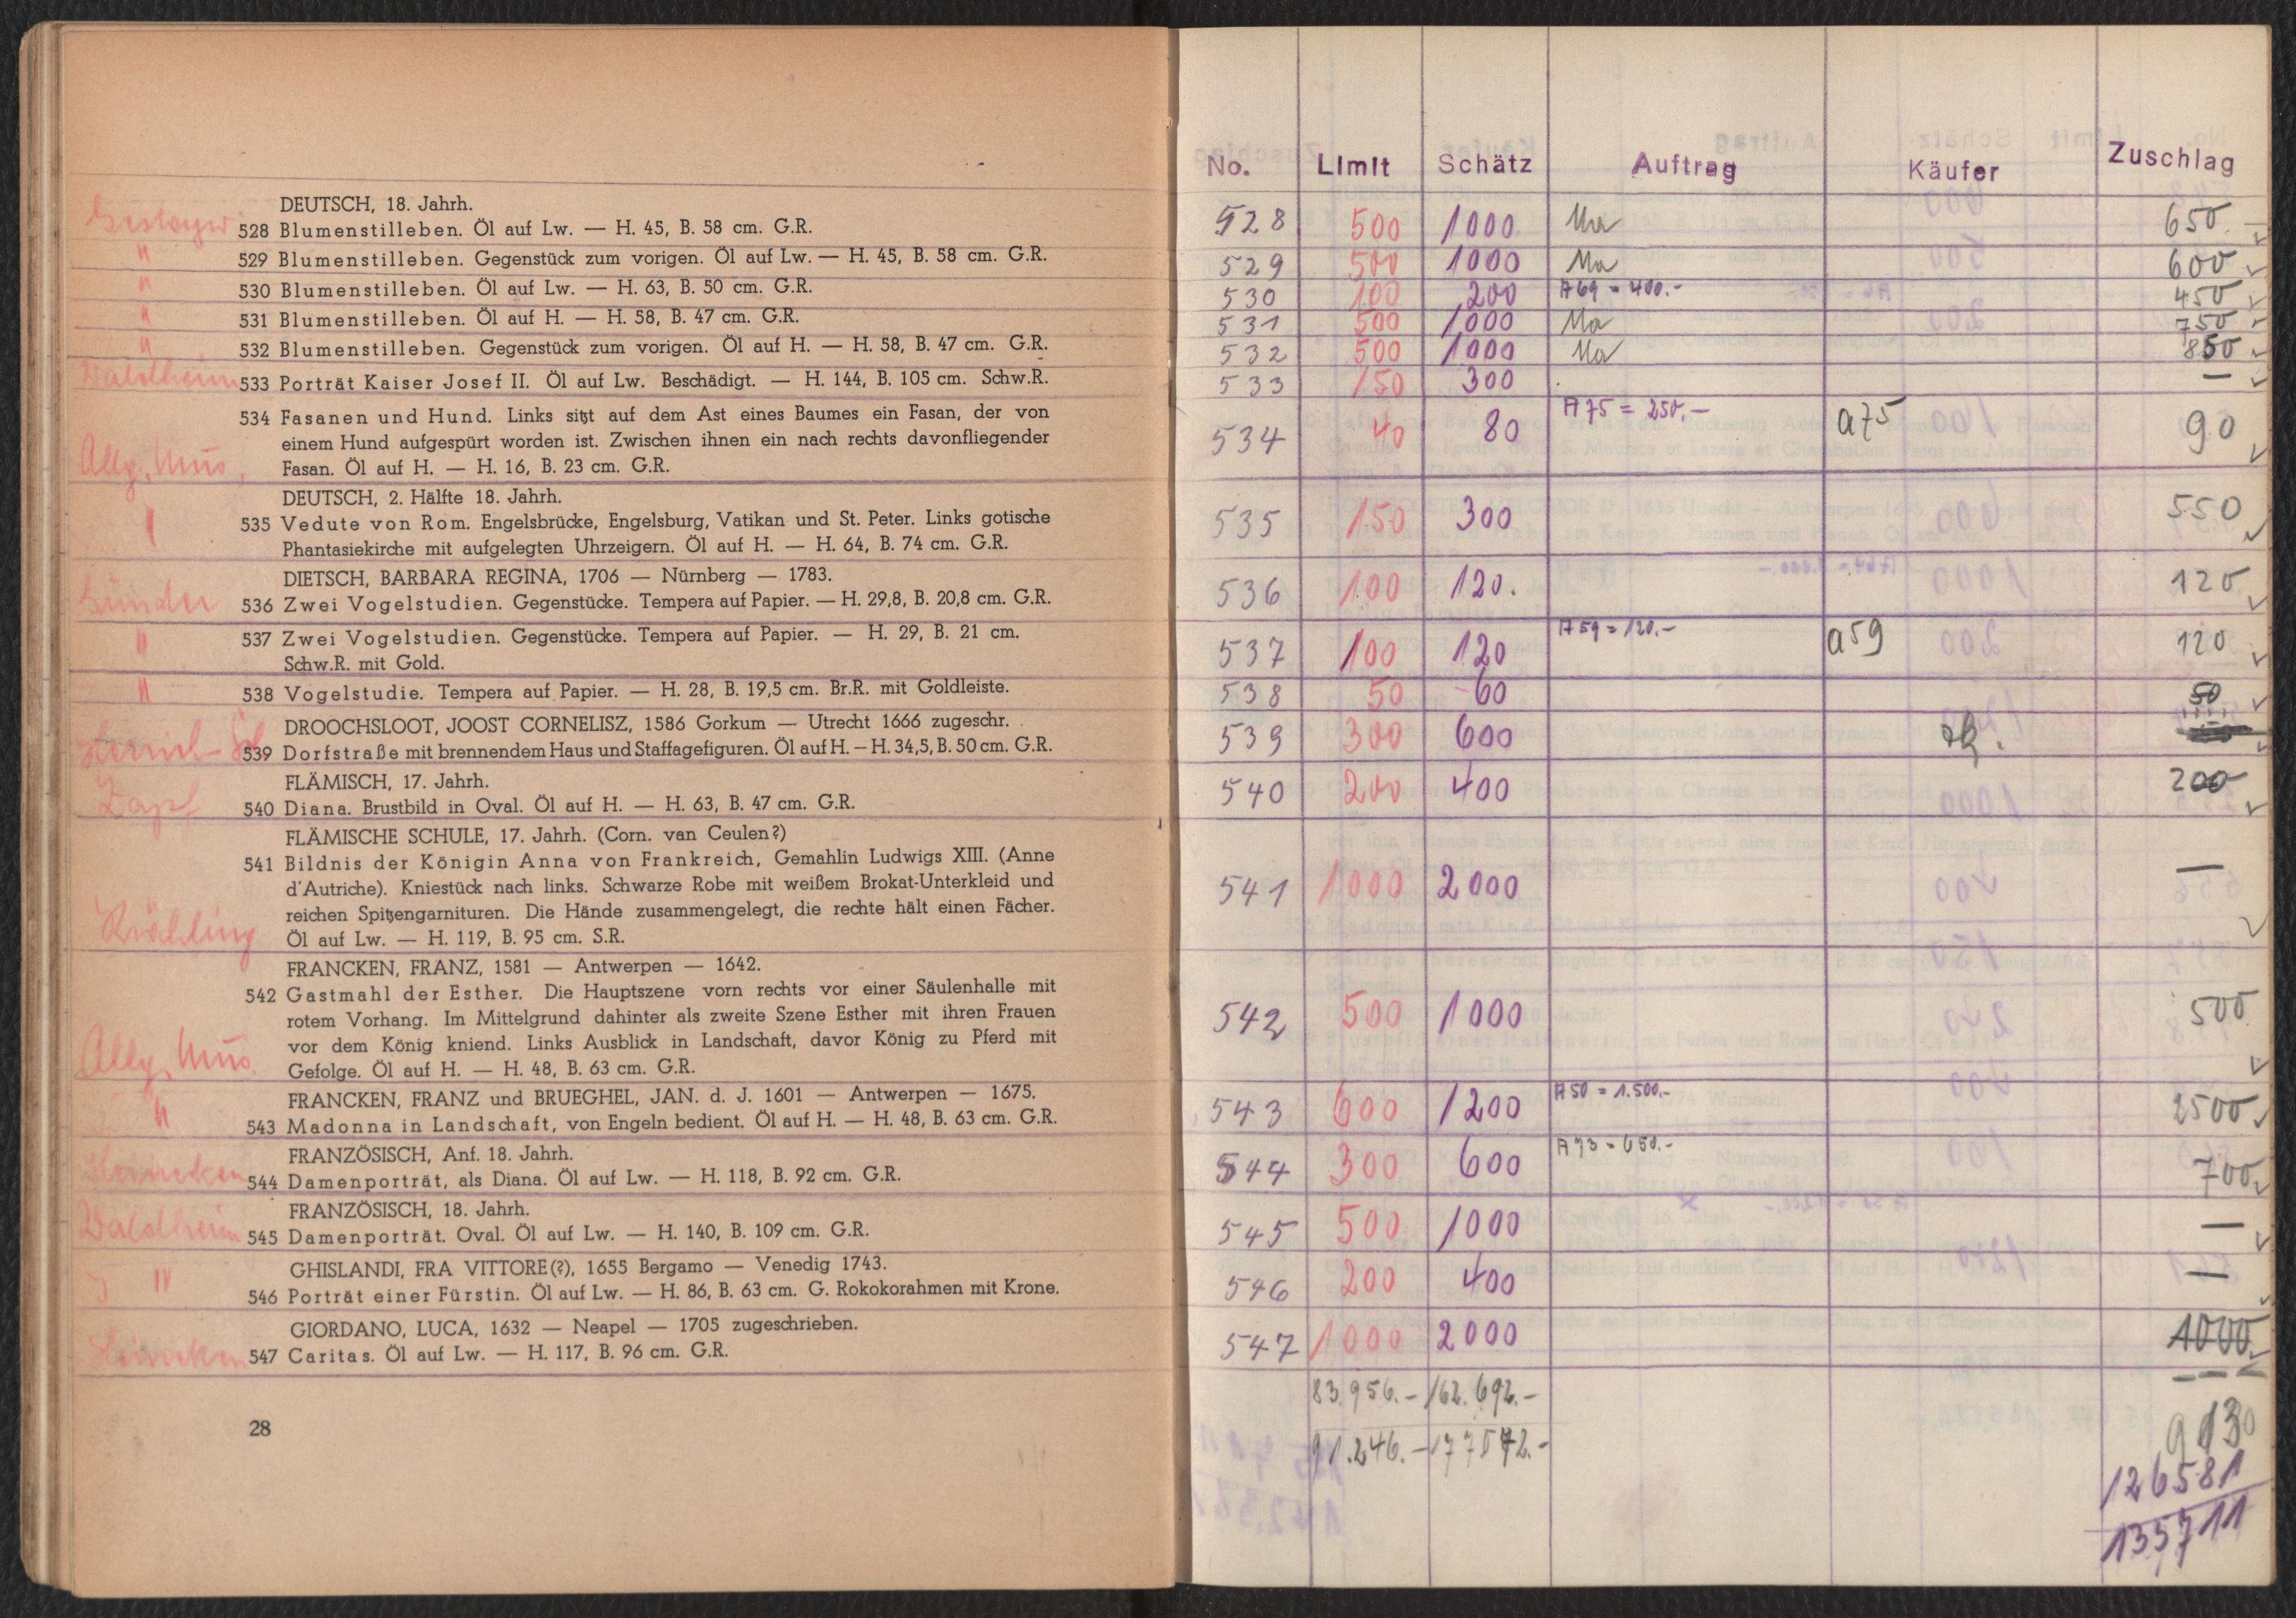 DEUTSCH, 18. Jahrh.
528 Blumenstilleben. Öl auf Lw. — H. 45, B. 58 cm. G.R.
" 529 Blumenstilleben. Gegenstück zum vorigen. Öl auf Lw. — H. 45, B. 58 cm. G.R.
" 530 Blumenstilleben. Öl auf Lw. — H. 63, B. 50 cm. G.R.
" 531 Blumenstilleben. Öl auf H. — H. 58, B. 47 cm. G.R.
" 532 Blumenstilleben. Gegenstück zum vorigen. Öl auf H. — H. 58, B. 47 cm. G.R.
Waldheim 533 Porträt Kaiser Josef II. Öl auf Lw. Beschädigt. — H. 144, B. 105 cm. Schw.R.
534 Fasanen und Hund. Links sitzt auf dem Ast eines Baumes ein Fasan, der von
einem Hund aufgespürt worden ist. Zwischen ihnen ein nach rechts davonfliegender
Allg. Mus. Fasan. Öl auf H. — H. 16, B. 23 cm. G.R.
DEUTSCH, 2. Hälfte 18. Jahrh.
535 Vedute von Rom. Engelsbrücke, Engelsburg, Vatikan und St. Peter. Links gotische
Phantasiekirche mit aufgelegten Uhrzeigern. Öl auf H. — H. 64, B. 74 cm. G.R.
DIETSCH, BARBARA REGINA, 1706 — Nürnberg — 1783.
536 Zwei Vogelstudien. Gegenstücke. Tempera auf Papier. — H. 29,8, B. 20,8 cm. G.R.
" 537 Zwei Vogelstudien. Gegenstücke. Tempera auf Papier. — H. 29, B. 21 cm.
Schw.R. mit Gold.
" 538 Vogelstudie. Tempera auf Papier. — H. 28, B. 19,5 cm. Br.R. mit Goldleiste.
DROOCHSLOOT, JOOST CORNELISZ, 1586 Gorkum — Utrecht 1666 zugeschr.
539 Dorfstraße mit brennendem Haus und Staffagefiguren. Öl auf H. — H. 34,5, B. 50 cm. G.R.
FLÄMISCH, 17. Jahrh.
Zapf 540 Diana. Brustbild in Oval. Öl auf H. — H. 63, B. 47 cm. G.R.
FLÄMISCHE SCHULE, 17. Jahrh. (Corn. van Ceulen?)
541 Bildnis der Königin Anna von Frankreich, Gemahlin Ludwigs XIII. (Anne
d'Autriche). Kniestück nach links. Schwarze Robe mit weißem Brokat-Unterkleid und
reichen Spitzengarnituren. Die Hände zusammengelegt, die rechte hält einen Fächer.
Öl auf Lw. — H. 119, B. 95 cm. S.R.
FRANCKEN, FRANZ, 1581 — Antwerpen — 1642.
542 Gastmahl der Esther. Die Hauptszene vorn rechts vor einer Säulenhalle mit
rotem Vorhang. Im Mittelgrund dahinter als zweite Szene Esther mit ihren Frauen
vor dem König kniend. Links Ausblick in Landschaft, davor König zu Pferd mit
Allg. Mus. Gefolge. Öl auf H. — H. 48, B. 63 cm. G.R.
FRANCKEN, FRANZ und BRUEGHEL, JAN. d. J. 1601 — Antwerpen — 1675.
" 543 Madonna in Landschaft, von Engeln bedient. Öl auf H. — H. 48, B. 63 cm. G.R.
FRANZÖSISCH, Anf. 18. Jahrh.
Heinecken 544 Damenporträt, als Diana. Öl auf Lw. — H. 118, B. 92 cm. G.R.
FRANZÖSISCH, 18. Jahrh.
Waldheim 545 Damenporträt. Oval. Öl auf Lw. — H. 140, B. 109 cm. G.R.
GHISLANDI, FRA VITTORE(?), 1655 Bergamo — Venedig 1743.
" 546 Porträt einer Fürstin. Öl auf Lw. — H. 86, B. 63 cm. G. Rokokorahmen mit Krone.
GIORDANO, LUCA, 1632 — Neapel — 1705 zugeschrieben.
Heinecken 547 Caritas. Öl auf Lw. — H. 117, B. 96 cm. G.R.
28
No. Limit Schätz Auftrag Käufer Zuschlag
528 500 1000 Ma 650.—
529 500 1000 Ma 600
530 100 200 A 69 = 400.- 450
531 500 1000 Ma 750
532 500 1000 Ma 850
533 150 300 —
534 40 80 A 75 = 250.— a75 90
535 150 300 550
536 100 120. 120
537 100 120 A 59 = 120.— a59 120
538 50 60 50
539 300 600
540 200 400 200
541 1000 2000 —
542 500 1000 500
543 600 1200 A 50 = 1.500.- 2500
544 300 600 A 93 = 650.- 700
545 500 1000 —
546 200 400 —
547 1000 2000 1000
83.956.- 162.692.-
91.246.- 177572.-
9130
126581
135711